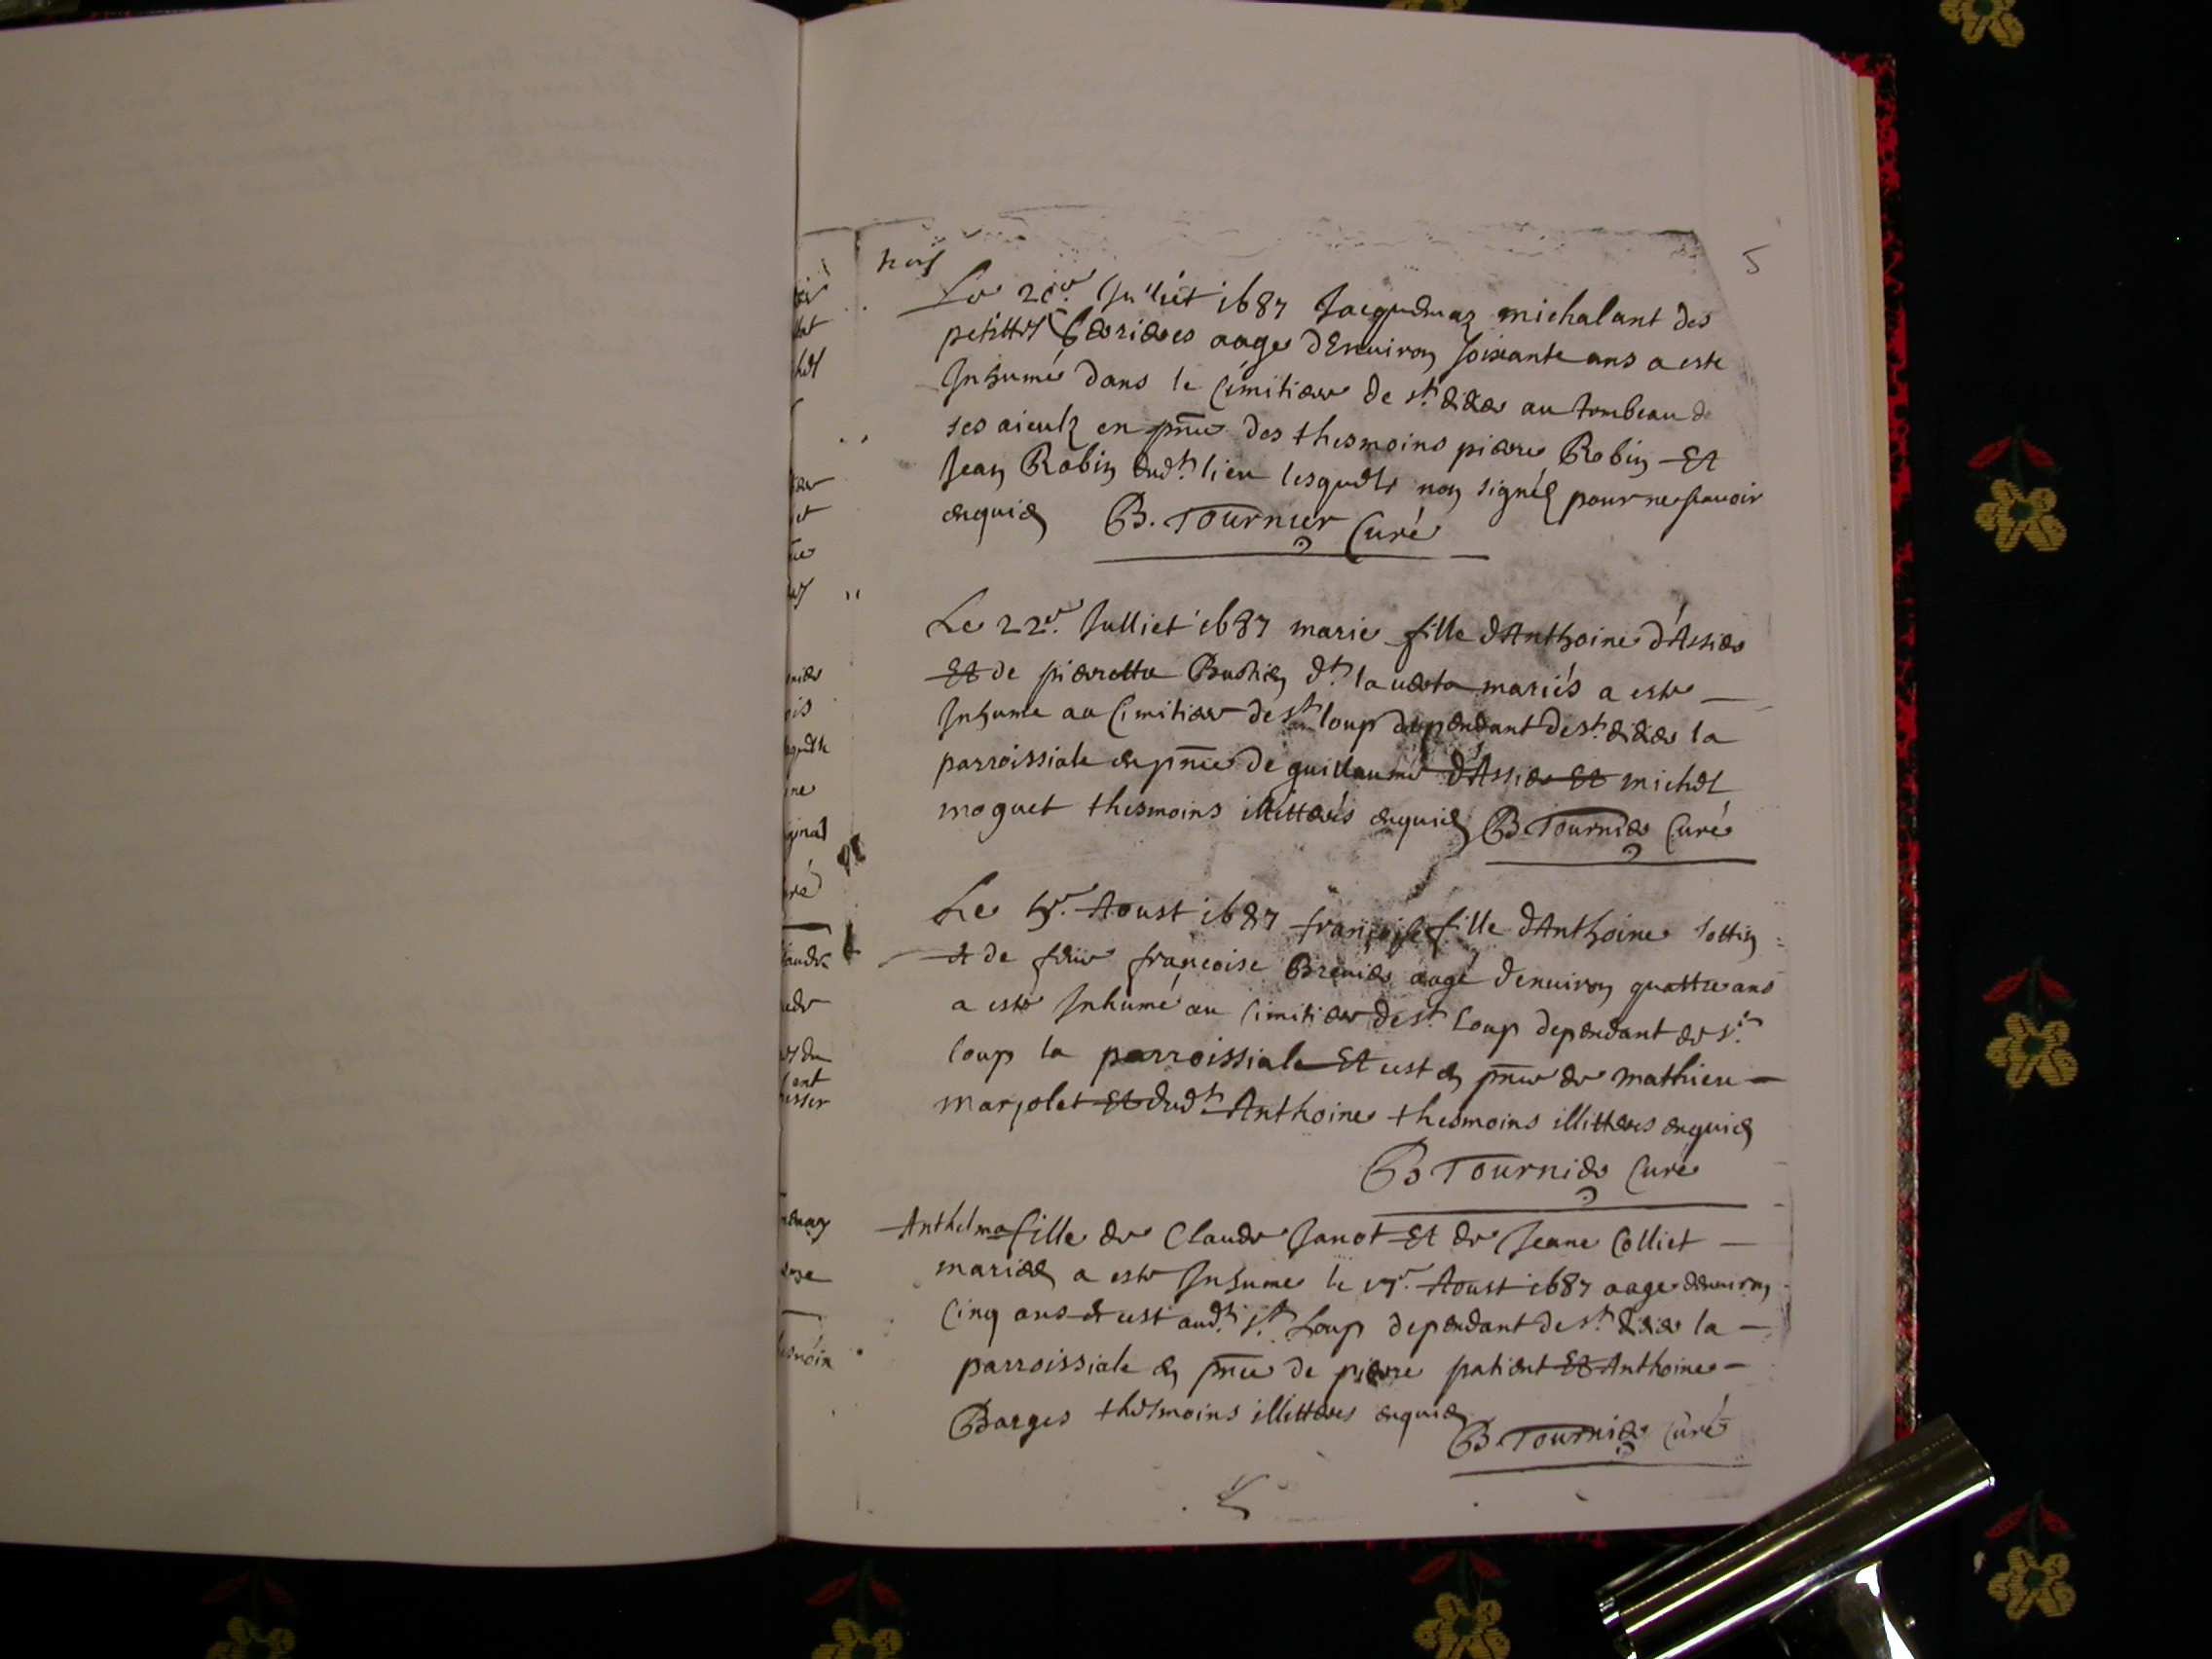 5
Le 20e Julliet 1687 Jacquemaz michalant des
petittes aage d'Enuiron soixante ans a este
Inhumé dans le Cimitier de st didier au tombeau de
ses aieulz en pnce des thesmoins pierre Robin Et
Jean Robin dudt lieu lesquels non signéz pour ne scauoir
enquis B. Tournier Curé
Le 22e Julliet 1687 marie fille d'Anthoine d'Assier
Et de pierrette dt la mariés a este
Inhume au Cimitier de st loup dependant de st didier la
parroissiale en pnce de guillaume d'Assier Et michel
moguet thesmoins illitterés enquis B Tournier Curé
Le Aoust 1687 françoise fille d'Anthoine sottin
et de feue françoise Breuier aagé d'enuiron quattre ans
a este Inhumé au Cimitier de st Loup dependant de st
loup la parroissiale Et cest en pnce de mathieu
marjolet Et dudt Anthoine thesmoins illitteres enquis
B Tournier Curé
Anthelma fille de Claude Janot Et de Jeane Colliet
mariés a este Inhume le Aoust 1687 aage denuiron
Cinq ans et cest audt st Loup dependant de st didier la
parroissiale en pnce de pierre patient Et Anthoine
Barges thesmoins illitteres enquis
B Tournier Curé